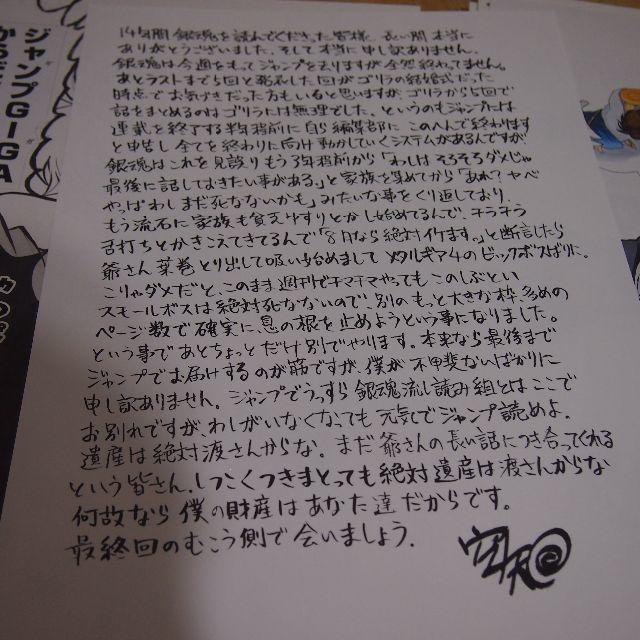 14年間銀魂を読んでくださった皆様、長い間本当に
ありがとうございました、そして本当に申し訳ありません。
銀魂は今週をもってジャンプを去りますが全然終わってません。
あとラストまで5回と発表した回がゴリラの結婚式だった
時点でお気づきだった方もいると思いますが、ゴリラから5回で
話をまとめるのはゴリラには無理でした、というのもジャンプには
連載を終了する数話前に自ら編集部に このへんで終わります
と申告し 全てを終わりに向け動かしていくシステムがあるんですが
銀魂はこれを見誤り もう 前から「わしは そろそろダメじゃ
最後に話しておきたい事がある」と家族を集めてから「あれ？ヤベ
やっぱわし まだ死なないかも」みたいな事をくり返しており、
もう流石に家族も貧乏ゆすりとかし始めてるんで、チラチラ
舌打ちとかきこえてきてるんで「8月なら絶対イケます。」と断言したら
爺さん葉巻とり出して吸い始めまして メタルギア4のビックボスばりに。
こりゃダメだと、このまま週刊でチマチマやっても このしぶとい
スモールボスは絶対死なないので、別のもっと大きな枠、多めの
ページ数で確実に息の根を止めようという事になりました。
という事であとちょっとだけ別でやります。本来なら最後まで
ジャンプでお届けするのが筋ですが、僕が不甲斐ないばかりに
申し訳ありません。ジャンプでうっすら銀魂流し読み組とはここで
お別れですが、わしがいなくなっても元気でジャンプ読めよ。
遺産は絶対渡さんからな。まだ爺さんの長い話につき合ってくれる
という皆さん、しつこくつきまとっても絶対遺産は渡さんからな
何故なら僕の財産はあなた達だからです。
最終回のむこう側で会いましょう。
ジャンプGIGA